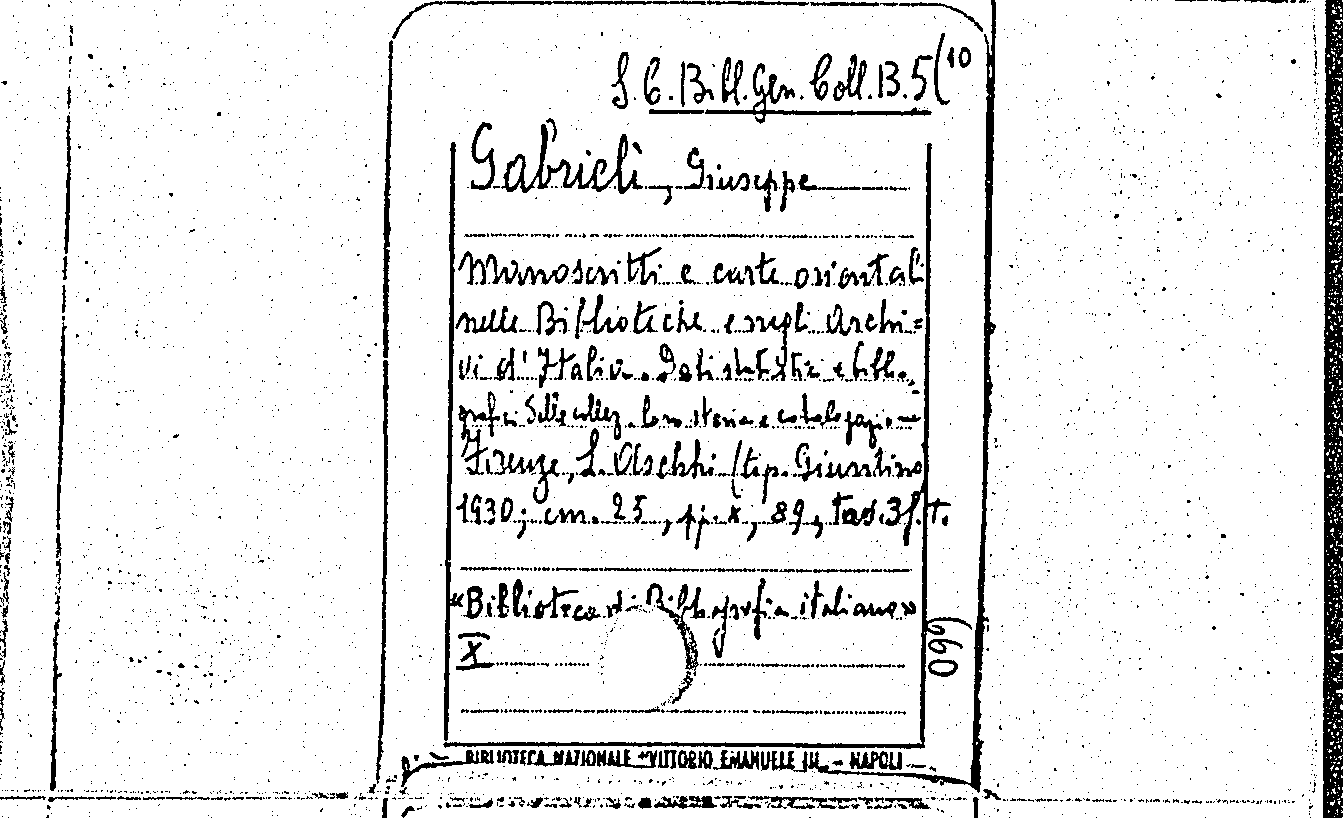 S. C. Bibl. Gen. Coll. B. 5(10
Gabrieli, Giuseppe
Manoscritti e carte orientali
nelle Biblioteche e negli Archi=
vi d'Italia. Dati statistici e biblio=
grafici delle collez. loro storia e catalogazione
Firenze, L. Olschki (tip. Giuntina
1930; cm. 25, pp. X, 89, tav. 3 f. t.
«Biblioteca di Bibliografia italiana»
X
(660
BIBLIOTECA NAZIONALE "VITTORIO EMANUELE III„ - NAPOLI